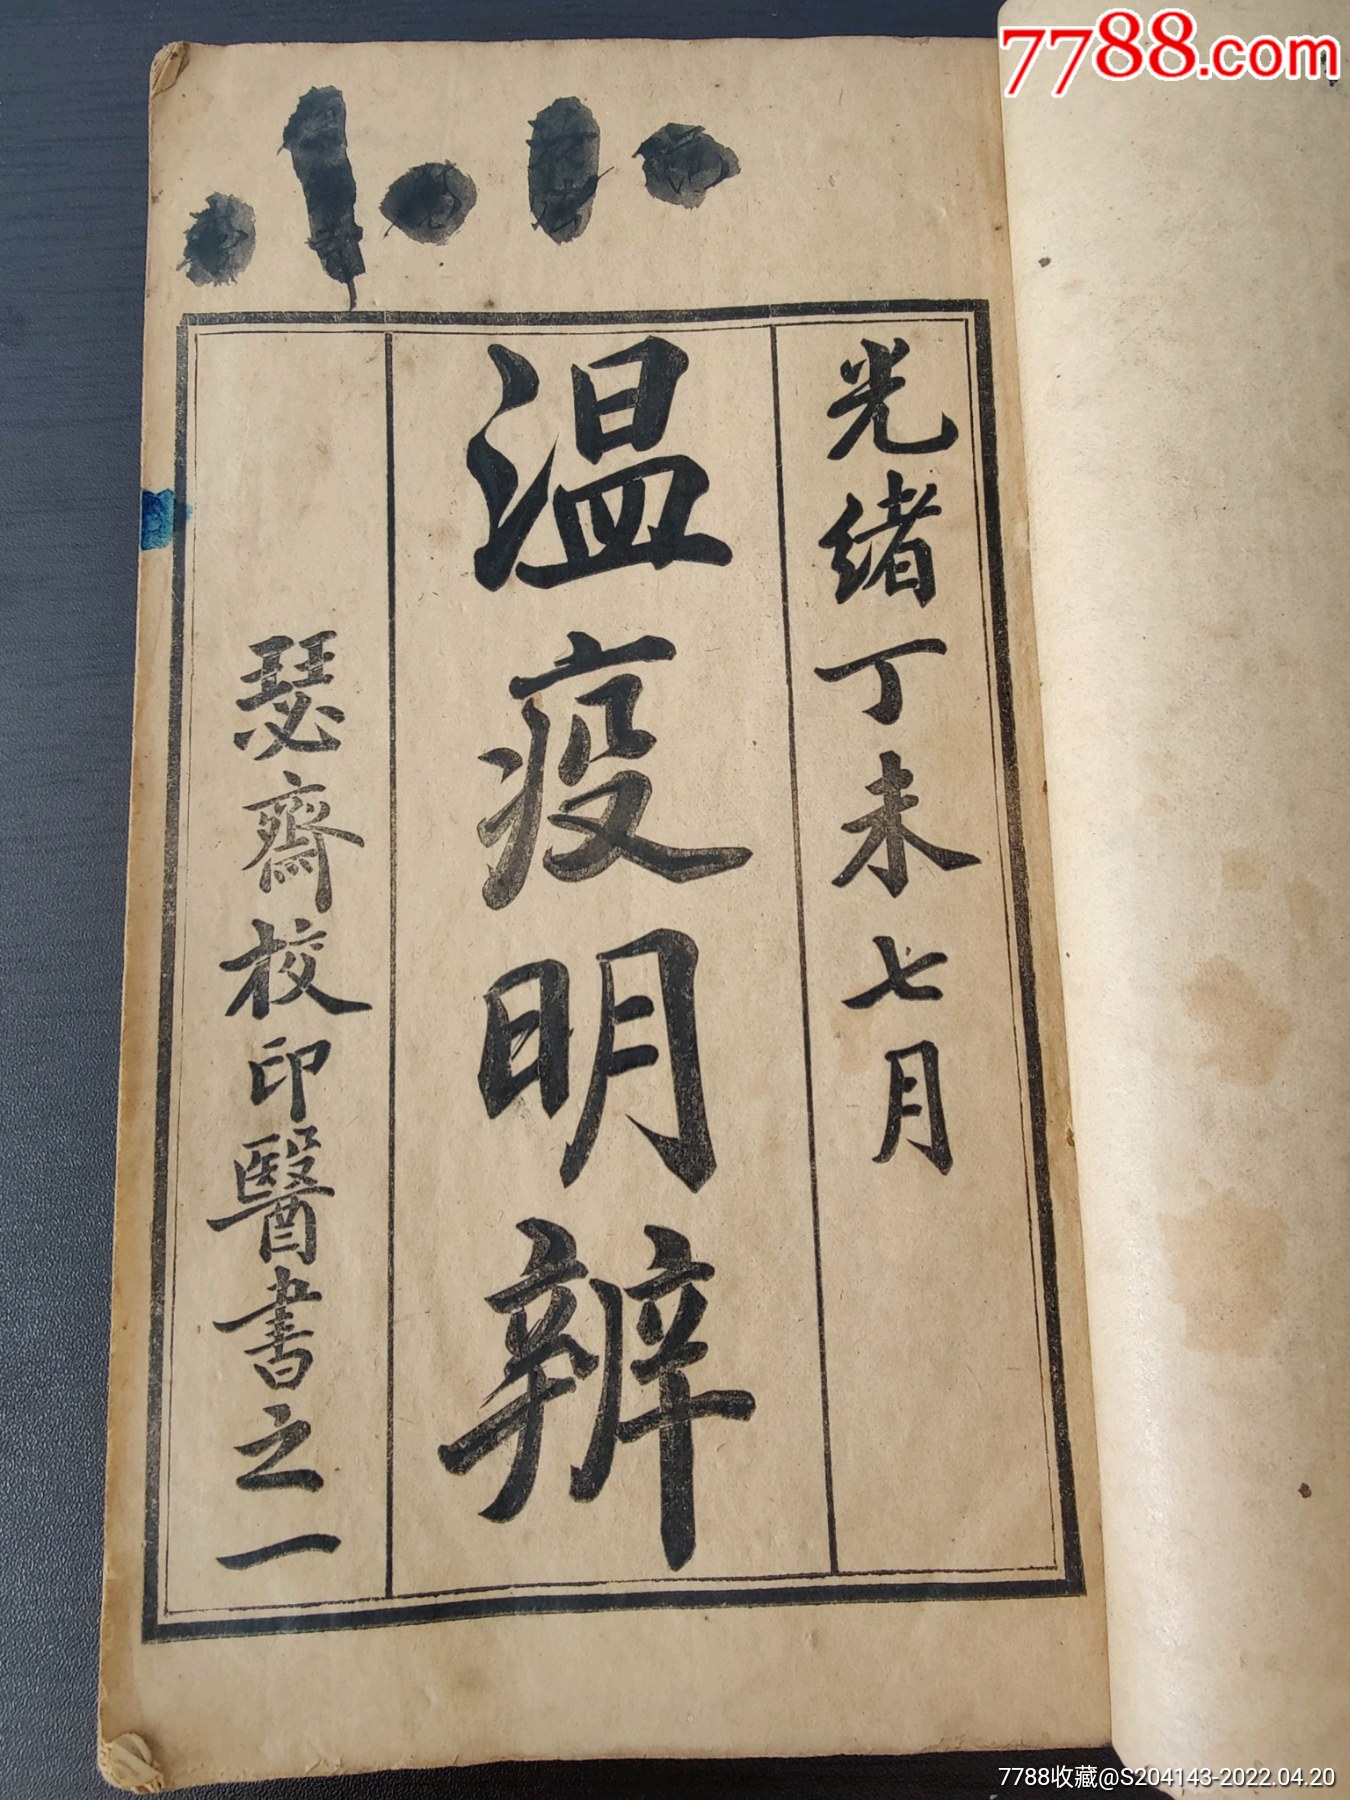 7788.com
光緒丁未七月
温疫明辨
瑟齋校印醫書之一
7788收藏@S204143-2022.04.20